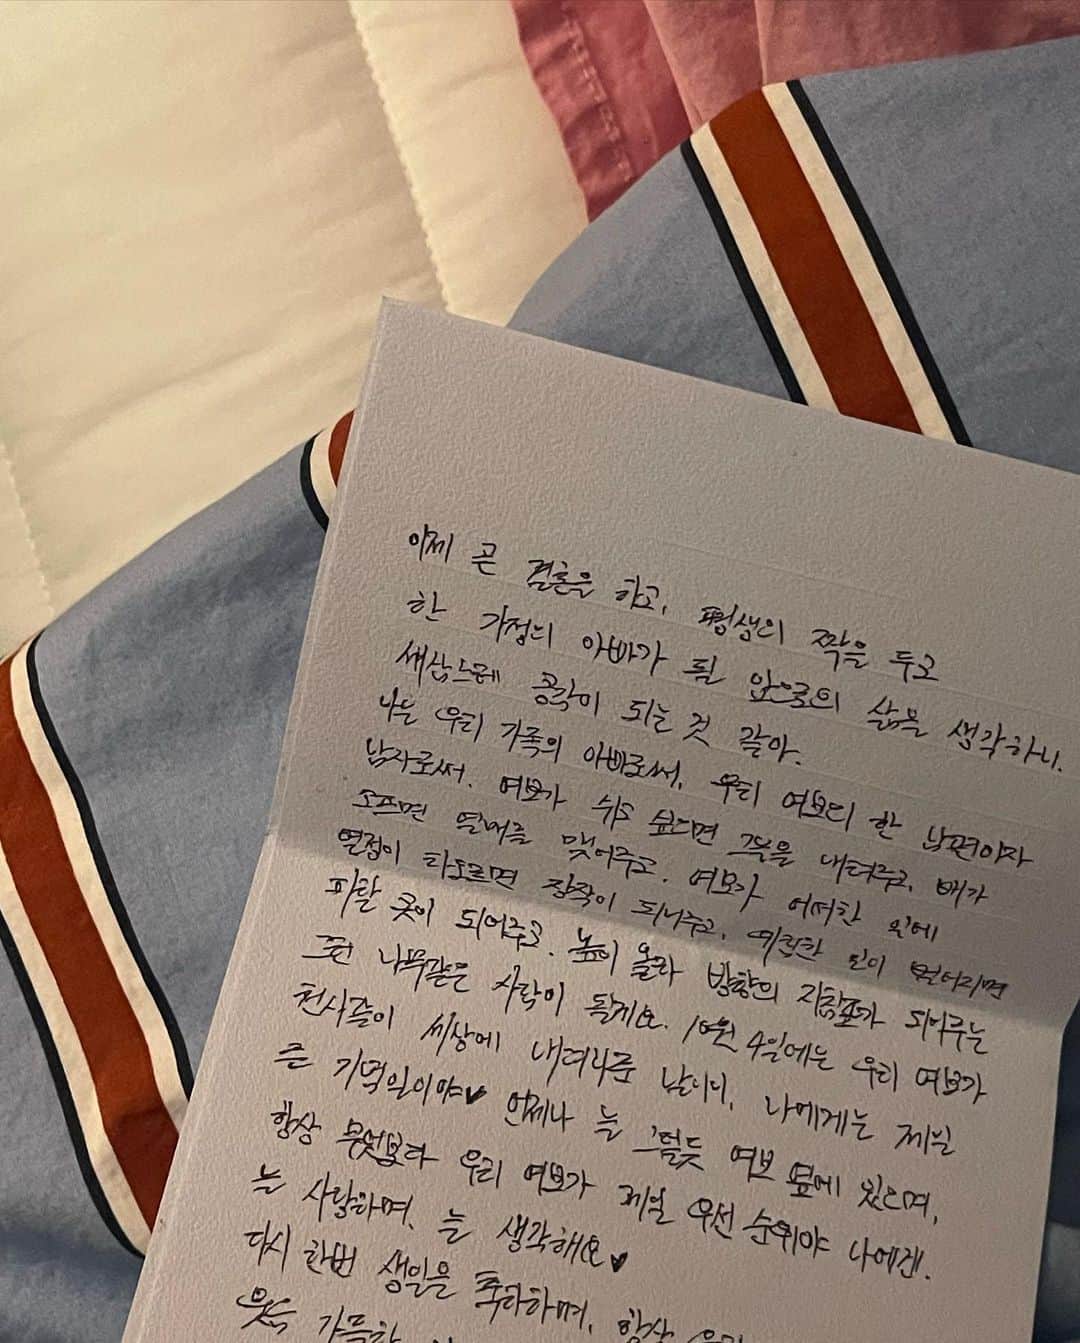 이제 곧 결혼을 하고, 평생의 짝을 두고
한 가정의 아빠가 될 앞으로의 삶을 생각하니.
새삼스레 공감이 되는 것 같아.
나는 우리 가족의 아빠로써, 우리 여보의 한 남편이자
남자로써. 여보가 쉬고 싶다면 그늘을 내려주고, 배가
고프면 열매를 맺어주고. 여보가 어떠한 일에
열정이 타오르면 장작이 되어주고, 미련한 일이 벌어지면
피할 곳이 되어주고. 높이 올라 방향의 지침표가 되어주는
그런 나무같은 사람이 될게요. 10월 4일에는 우리 여보가
천사들이 세상에 내려다준 날이니, 나에게는 제일
큰 기념일이야♥ 언제나 늘 그렇듯 여보 옆에 있으며,
항상 무엇보다 우리 여보가 제일 우선 순위야 나에겐.
늘 사랑하며, 늘 생각해요♥
다시 한번 생일을 축하하며, 항상 우리
웃음 가득한